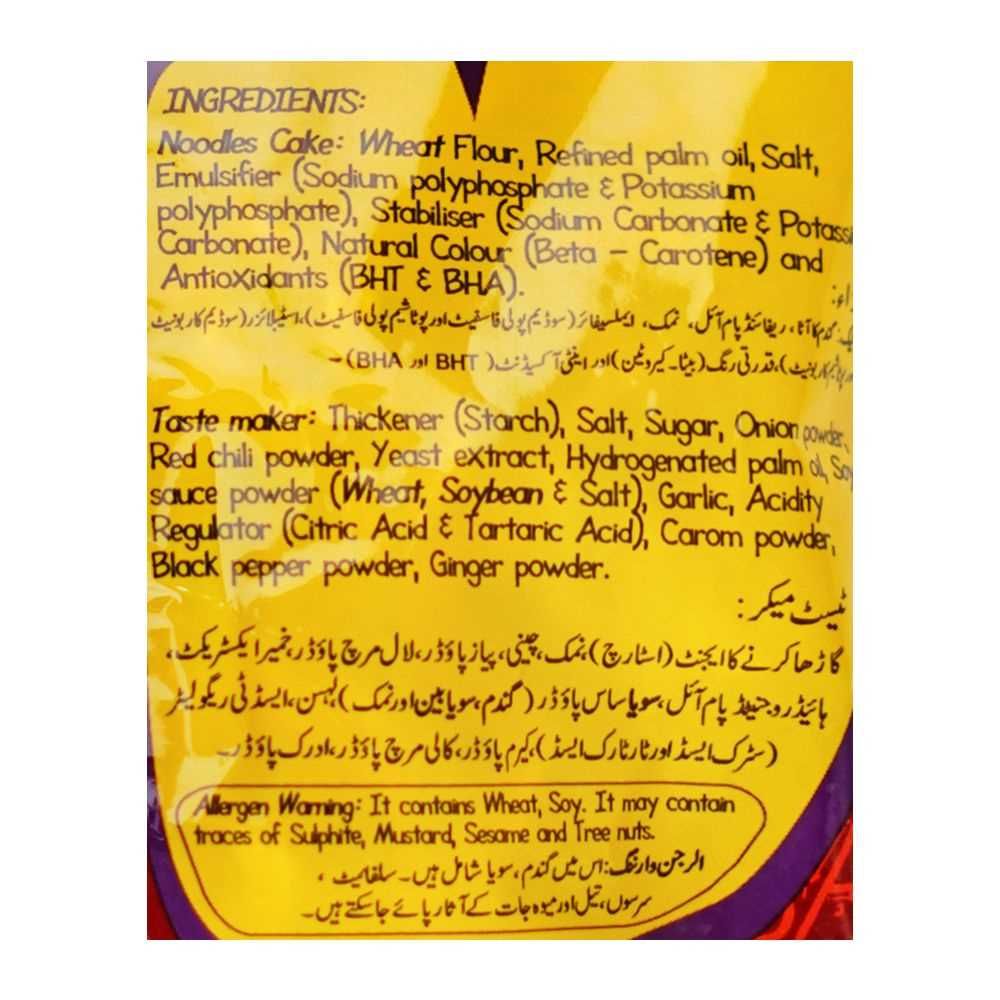 INGREDIENTS:
Noodles Cake: Wheat Flour, Refined palm oil, Salt,
Emulsifier (Sodium polyphosphate & Potassium
polyphosphate), Stabiliser (Sodium Carbonate & Potassi
Carbonate), Natural Colour (Beta - Carotene) and
Antioxidants (BHT & BHA).
گندم کا آٹا، ریفائنڈ پام آئل، نمک، ایملسیفائر (سوڈیم پولی فاسفیٹ اور پوٹاشیم پولی فاسفیٹ)، اسٹیبلائزر (سوڈیم کاربونیٹ
پوٹاشیم کاربونیٹ)، قدرتی رنگ (بیٹا۔ کیروٹین) اور اینٹی آکسیڈنٹ (BHT اور BHA)۔
Taste maker: Thickener (Starch), Salt, Sugar, Onion powder,
Red chili powder, Yeast extract, Hydrogenated palm oil, Soy
sauce powder (Wheat, Soybean & Salt), Garlic, Acidity
Regulator (Citric Acid & Tartaric Acid), Carom powder,
Black pepper powder, Ginger powder.
ٹیسٹ میکر:
گاڑھا کرنے کا ایجنٹ (اسٹارچ)، نمک، چینی، پیاز پاؤڈر، لال مرچ پاؤڈر، خمیر ایکسٹریکٹ،
ہائیڈروجنیٹڈ پام آئل، سویا ساس پاؤڈر (گندم، سویا بین اور نمک)، لہسن، ایسڈٹی ریگولیٹر
(سٹرک ایسڈ اور ٹارٹارک ایسڈ)، کیرم پاؤڈر، کالی مرچ پاؤڈر، ادرک پاؤڈر۔
Allergen Warning: It contains Wheat, Soy. It may contain
traces of Sulphite, Mustard, Sesame and Tree nuts.
الرجن وارننگ: اس میں گندم، سویا شامل ہیں۔ سلفائیٹ،
سرسوں، تیل اور میوہ جات کے آثار پائے جاسکتے ہیں۔